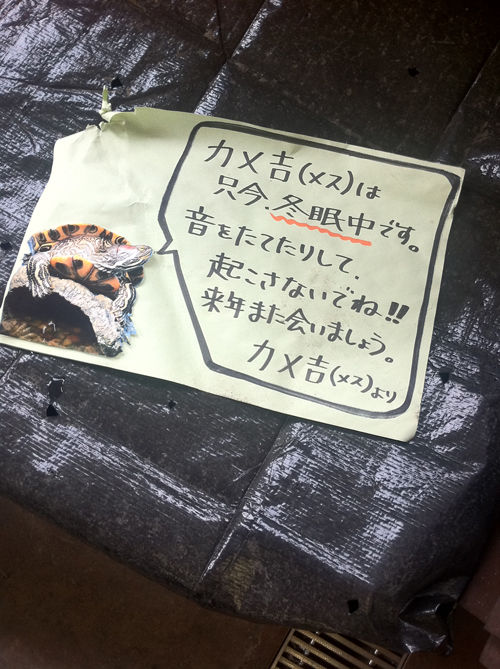 カメ吉(メス)は
只今、冬眠中です。
音をたてたりして、
起こさないでね!!
来年また会いましょう。
カメ吉(メス)より